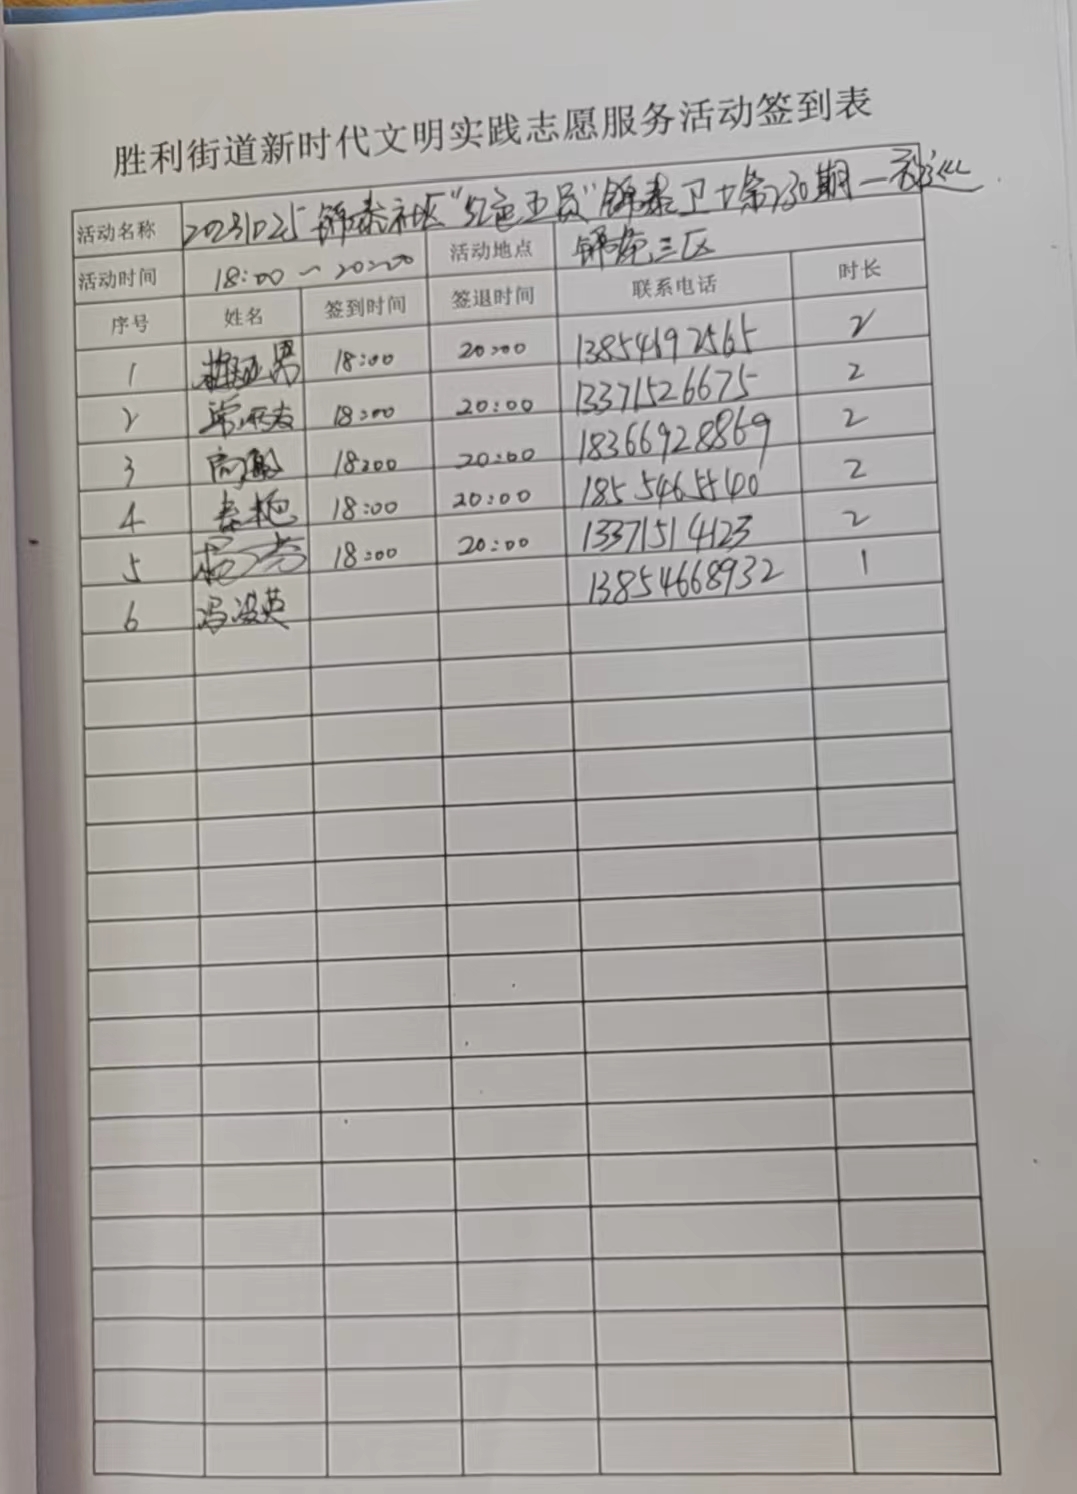 胜利街道新时代文明实践志愿服务活动签到表
活动名称 20231025锦泰社区"红色五员"锦泰卫士第230期一
活动时间 18:00-20:00 活动地点 锦苑三区
序号 姓名 签到时间 签退时间 联系电话 时长
1 18:00 20:00 13854692565 2
2 18:00 20:00 13371526675 2
3 高 18:00 20:00 18366928869 2
4 18:00 20:00 18554655400 2
5 杨 18:00 20:00 13371514123 2
6 冯英 13854668932 1